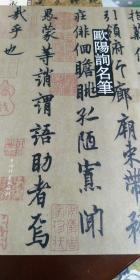 歐陽詢名筆
引領俯仰廊廟束帶矜
莊徘徊瞻眺孤陋寡聞
愚蒙等誚謂語助者焉
哉乎也